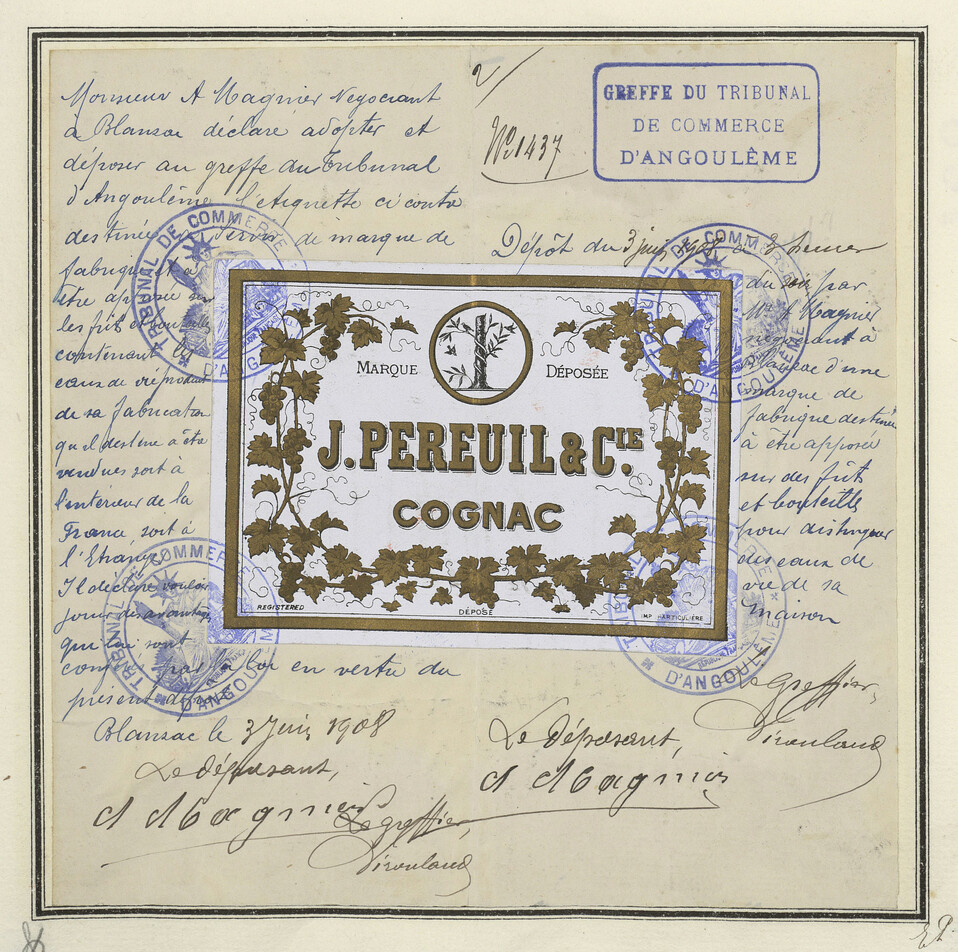 Monsieur A Magnier Negociant
à Blanzac déclare adopter et
déposer au greffe du Tribunal
d'Angoulême l'étiquette ci contre
destinée à servir de marque de
fabrique et à
être apposée sur
les fûts et bouteilles
contenant les
eaux de vie produit
de sa fabrication
qu'il destine à être
vendues soit à
l'intérieur de la
France, soit à
l'Etranger
Il déclare vouloir
jouir des avantages
qui lui sont
conférés par la loi en vertu du
présent dépôt
Blanzac le 3 Juin 1908
Le déposant,
A Magnier
Le Greffier,
2/
No 1437
GREFFE DU TRIBUNAL
DE COMMERCE
D'ANGOULÊME
Dépôt du 3 juin 1908 à heures
du soir par
Mr A Magnier
négociant à
Blanzac d'une
marque de
fabrique destinée
à être apposée
sur des fûts
et bouteilles
pour distinguer
des eaux de
vie de sa
maison
Le Greffier,
Le déposant,
A Magnier
MARQUE DÉPOSÉE
J. PEREUIL & CIE.
COGNAC
REGISTERED
DÉPOSÉ
IMP PARTICULIÈRE
TRIBUNAL DE COMMERCE
D'ANGOULÊME
TRIBUNAL DE COMMERCE
D'ANGOULÊME
TRIBUNAL DE COMMERCE
D'ANGOULÊME
TRIBUNAL DE COMMERCE
D'ANGOULÊME